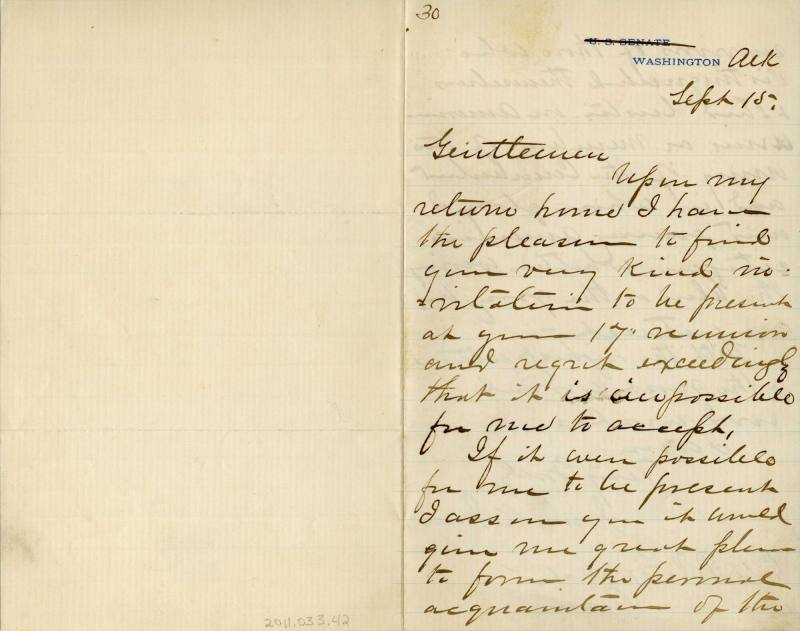 30
U. S. SENATE
WASHINGTON Ack
Sept 15.
Gentlemen
Upon my
return home I have
the pleasure to find
your very kind in-
-vitation to be present
at your 17" reunion
and regret exceedingly
that it is impossible
for me to accept,
If it were possible
for me to be present
I assure you it would
give me great pleasure
to form the personal
acquaintance of the
2011.033.42